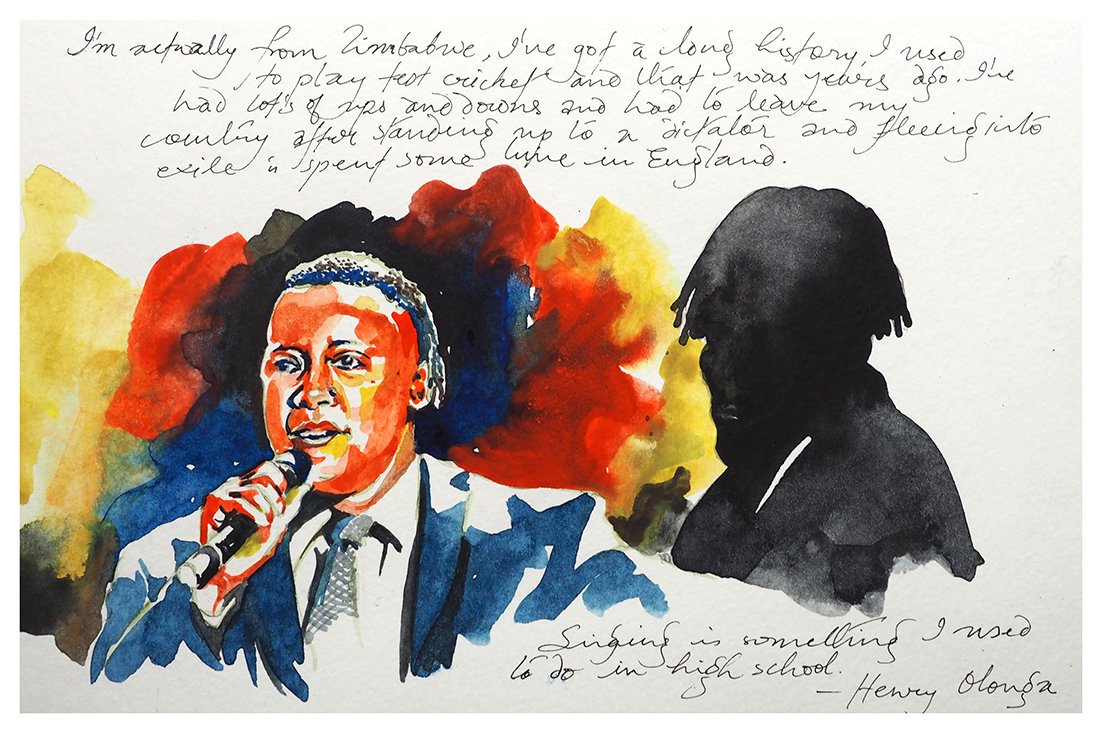 I'm actually from Zimbabwe, I've got a long history, I used
to play test cricket and that was years ago. I've
had lot's of ups and downs and had to leave my
country after standing up to a dictator and fleeing into
exile n spent some time in England.
Singing is something I used
to do in high school.
– Henry Olonga